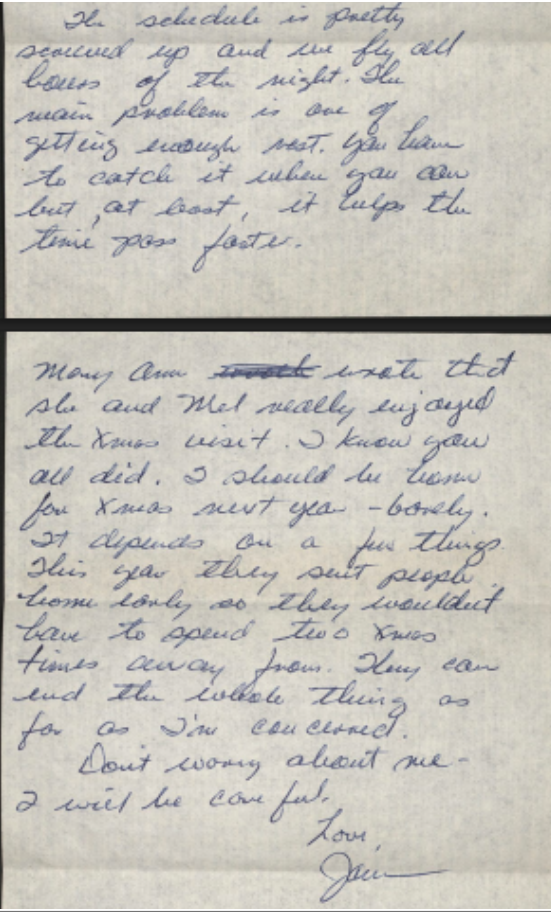 The schedule is pretty
screwed up and we fly all
hours of the night. The
main problem is one of
getting enough rest. You have
to catch it when you can
but, at least, it helps the
time pass faster.
Mary Ann wrote that
she and Mel really enjoyed
the Xmas visit. I know you
all did. I should be home
for Xmas next year - barely.
It depends on a few things.
This year they sent people
home early so they wouldn't
have to spend two Xmas
times away from. They can
end the whole thing as
far as I'm concerned.
Don't worry about me -
I will be careful.
Love,